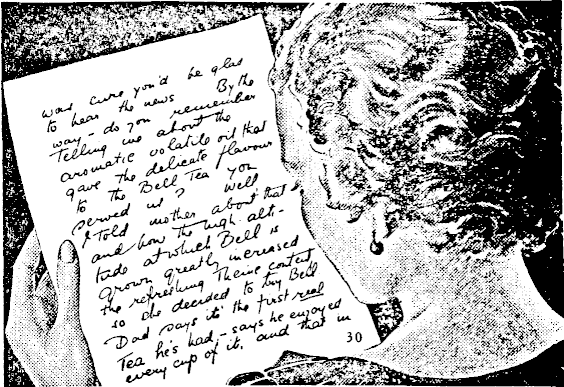 was sure you'd be glad
to hear the news By the
way - do you remember
Telling me about the
aromatic volatile oil that
gave the delicate flavour
to the Bell Tea you
served us? Well
I Told mother about that
and how the high alti-
tude at which Bell is
grown greatly increased
the refreshing Theine content
so she decided to try Bell
Dad says it's the first real
Tea he's had - says he enjoyed
every cup of it. and that in
30